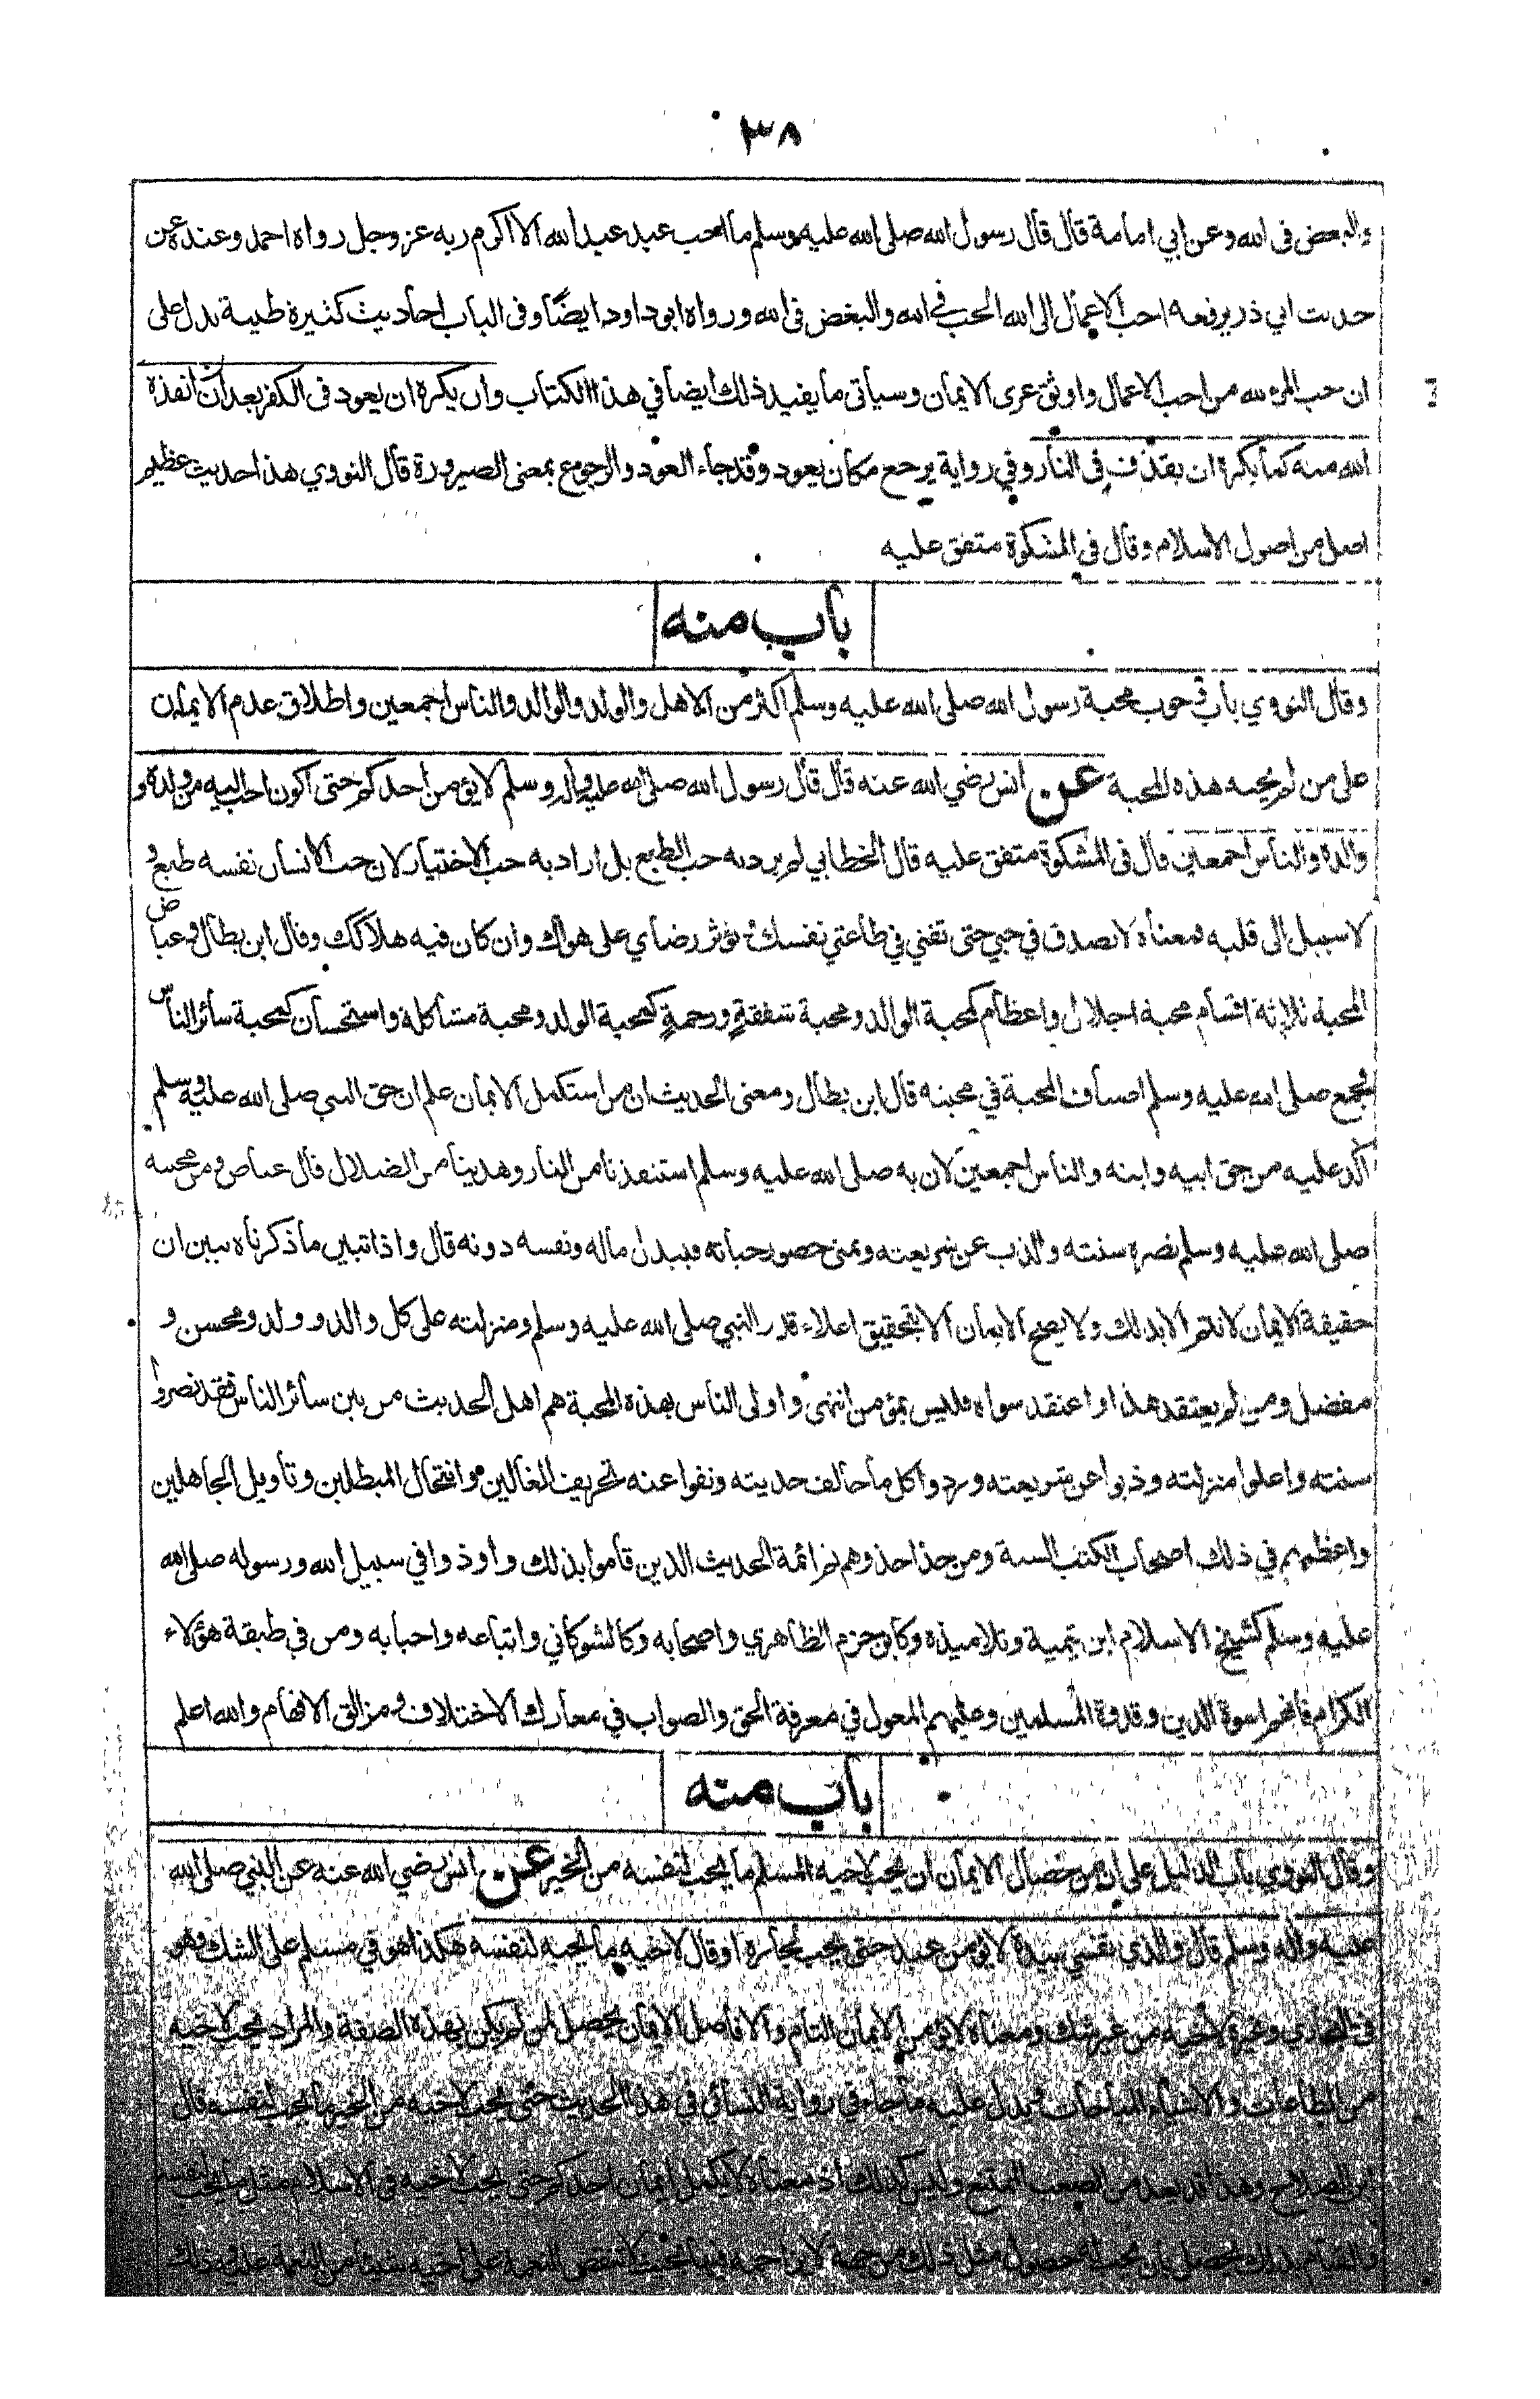 ٣٨
والبغض في الله وعن ابي امامة قال قال رسول الله صلى الله عليه وسلم ما احب عبد عبدا لله الا اكرم ربه عز وجل رواه احمد وعنده عن
حديث ابي ذر يرفعه احب الاعمال الى الله الحب في الله والبغض في الله ورواه ابو داود ايضًا وفي الباب احاديث كثيرة طيبة تدل على
ان حب المرء لله من احب الاعمال واوثق عرى الايمان وسيأتي ما يفيد ذلك ايضا في هذا الكتاب وان يكره ان يعود في الكفر بعد ان انقذه
الله منه كما يكره ان يقذف في النار وفي رواية يرجع مكان يعود وقد جاء العود والرجوع بمعنى الصيرورة قال النووي هذا حديث عظيم
اصل من اصول الاسلام وقال في المشكوة متفق عليه
باب منه
وقال النووي باب وجوب محبة رسول الله صلى الله عليه وسلم اكثر من الاهل والولد والوالد والناس اجمعين واطلاق عدم الايمان
على من لم يحبه هذه المحبة عن انس رضي الله عنه قال قال رسول الله صلى الله عليه وآله وسلم لا يؤمن احدكم حتى اكون احب اليه من ولده و
والده والناس اجمعين قال في المشكوة متفق عليه قال الخطابي لم يرد به حب الطبع بل اراد به حب الاختيار لان حب الانسان نفسه طبع و
لا سبيل الى قلبه فمعناه لا تصدق في حبي حتى تفني في طاعتي نفسك وتؤثر رضاي على هواك وان كان فيه هلاكك وقال ابن بطال وعياض
المحبة ثلاثة اقسام محبة اجلال واعظام كمحبة الوالد ومحبة شفقةٍ ورحمةٍ كمحبة الولد ومحبة مشاكلة واستحسان كمحبة سائر الناس
فجمع صلى الله عليه وسلم اصناف المحبة في محبته قال ابن بطال ومعنى الحديث ان من استكمل الايمان علم ان حق النبي صلى الله عليه وسلم
آكد عليه من حق ابيه وابنه والناس اجمعين لان به صلى الله عليه وسلم استنقذنا من النار وهدينا من الضلال قال عياض ومن محبته
صلى الله عليه وسلم نصرة سنته والذب عن شريعته وتمني حضور حياته فيبذل ماله ونفسه دونه قال واذا تبين ما ذكرناه تبين ان
حقيقة الايمان لا تتم الا بذلك ولا يصح الايمان الا بتحقيق اعلاء قدر النبي صلى الله عليه وسلم ومنزلته على كل والد وولد ومحسن و
مفضل ومن لم يعتقد هذا او اعتقد سواه فليس بمؤمن انتهى واولى الناس بهذه المحبة هم اهل الحديث من بين سائر الناس فقد نصروا
سنته واعلوا منزلته وذبوا عن شريعته وردوا كل ما خالف حديثه ونفوا عنه تحريف الغالين وانتحال المبطلين وتأويل الجاهلين
واعظمهم في ذلك اصحاب الكتب الستة ومن حذا حذوهم من ائمة الحديث الذين قاموا بذلك واوذوا في سبيل الله ورسوله صلى الله
عليه وسلم كشيخ الاسلام ابن تيمية وتلاميذه وكابن حزم الظاهري واصحابه وكالشوكاني واتباعه واحبابه ومن في طبقة هؤلاء
الكرام فانهم اسوة الدين وقدوة المسلمين وعليهم المعول في معرفة الحق والصواب في معارك الاختلاف ومزالق الافهام والله اعلم
باب منه
وقال النووي باب الدليل على ان من خصال الايمان ان يحب لاخيه المسلم ما يحب لنفسه من الخير عن انس رضي الله عنه عن النبي صلى الله
عليه وآله وسلم قال والذي نفسي بيده لا يؤمن عبد حتى يحب لجاره او قال لاخيه ما يحبه لنفسه هكذا هو في مسلم على الشك وهو
في البخاري وغيره لاخيه من غير شك ومعناه لا يؤمن الايمان التام والا فاصل الايمان يحصل لمن لم يكن بهذه الصفة والمراد يحب لاخيه
من الطاعات والاشياء المباحات ويدل عليه ما جاء في رواية النسائي في هذا الحديث حتى يحب لاخيه من الخير ما يحب لنفسه قال
ابن الصلاح وهذا قد يعد من الصعب الممتنع وليس كذلك اذ معناه لا يكمل ايمان احدكم حتى يحب لاخيه في الاسلام مثل ما يحب لنفسه
والقيام بذلك يحصل بان يحب له حصول مثل ذلك من جهة لا يزاحمه فيها بحيث لا تنقص النعمة على اخيه شيئا من النعمة عليه وذلك